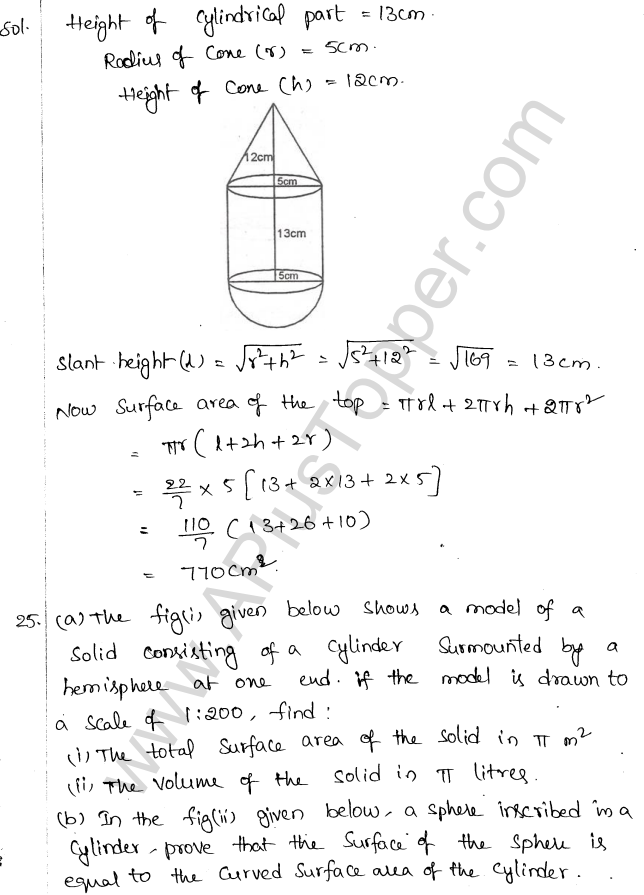 Sol. Height of cylindrical part = 13cm.
Radius of Cone (r) = 5cm.
Height of Cone (h) = 12cm.
12cm
5cm
13cm
5cm
Slant height (l) = √r²+h² = √5²+12² = √169 = 13cm.
Now Surface area of the top = πrl + 2πrh + 2πr²
= πr (l+2h+2r)
= 22/7 × 5 [13 + 2×13 + 2×5]
= 110/7 (13+26+10)
= 770cm².
25. (a) The fig(i) given below shows a model of a
Solid consisting of a cylinder Surmounted by a
hemisphere at one end. if the model is drawn to
a scale of 1:200, find:
(i) The total Surface area of the solid in π m²
(ii) The volume of the solid in π litres.
(b) In the fig(ii) given below, a sphere inscribed in a
cylinder, prove that the Surface of the sphere is
equal to the Curved Surface area of the cylinder.
www.APlusTopper.com